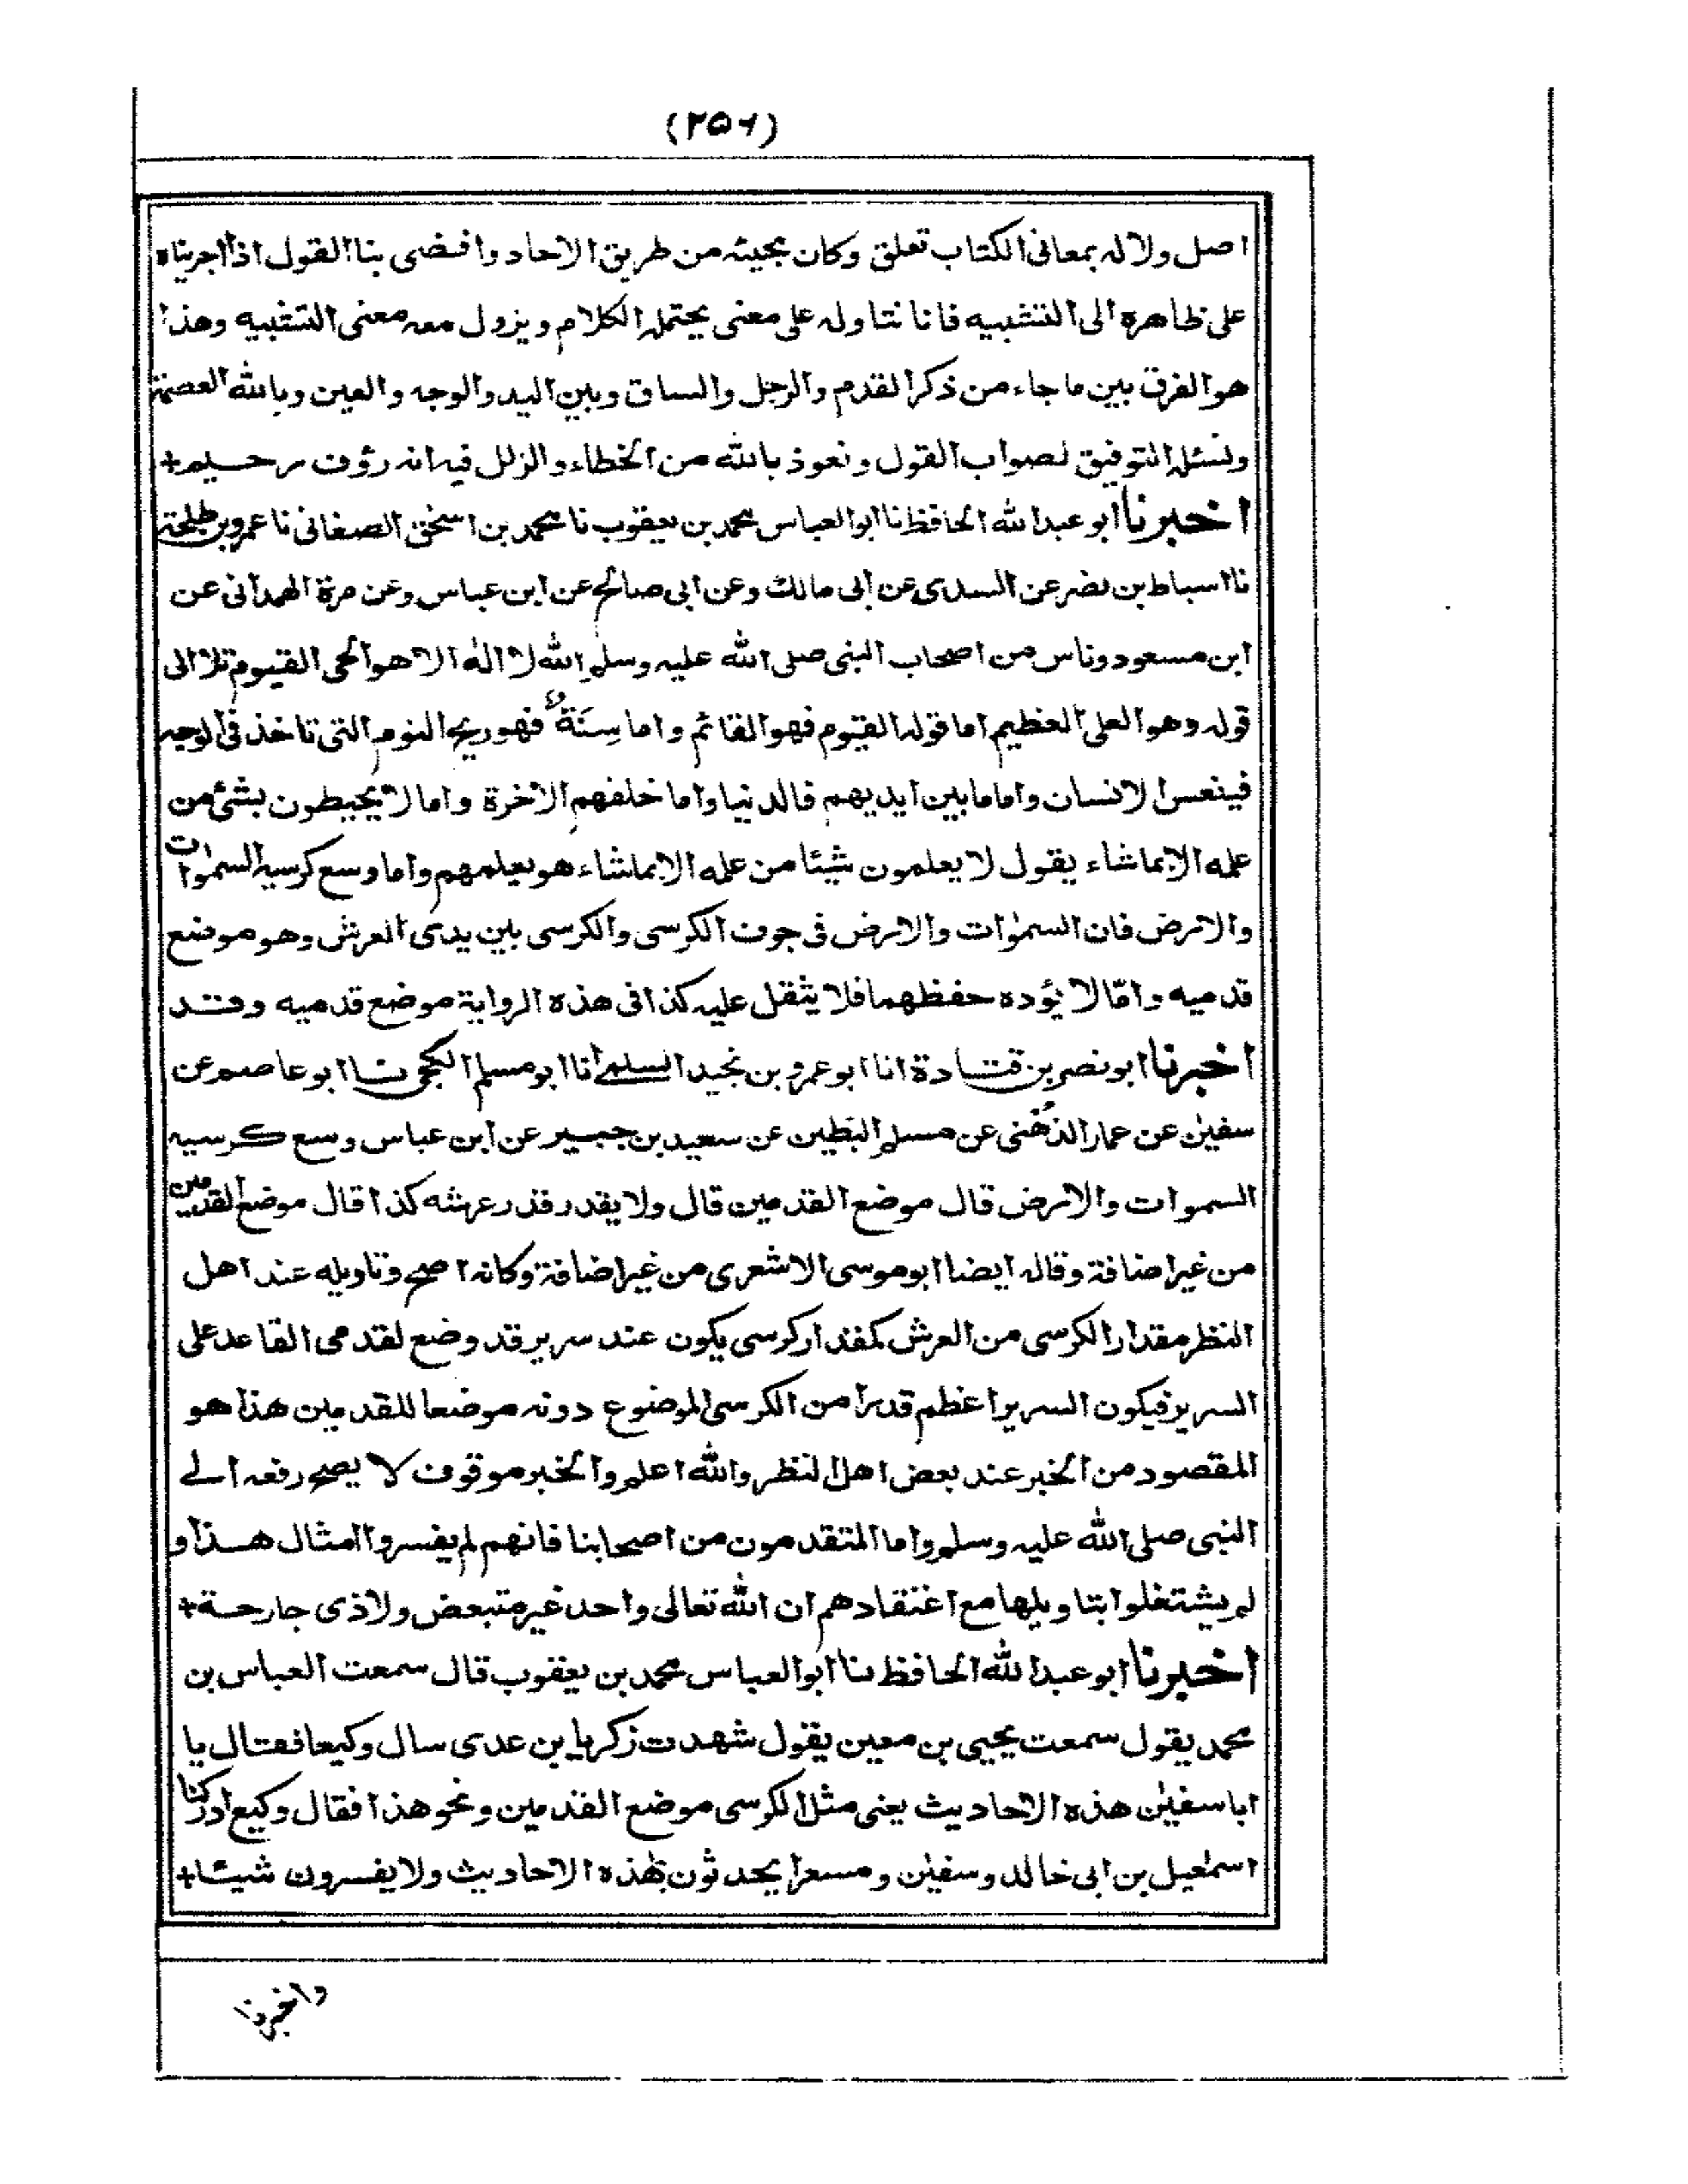 (٢٥٦)
اصل ولا له بمعانى الكتاب تعلق وكان مجيئه من طريق الاحاد وافضى بنا القول اذا اجريناه
على ظاهره الى التشبيه فانا نتاوله على معنى يحتمله الكلام ويزول معه معنى التشبيه وهذا
هو الفرق بين ما جاء من ذكر القدم والرجل والساق وبين اليد والوجه والعين وبالله العصمة
ونسئله التوفيق لصواب القول ونعوذ بالله من الخطاء والزلل فيه انه رؤف رحيم+
اخبرنا ابو عبد الله الحافظ نا ابو العباس محمد بن يعقوب نا محمد بن اسحٰق الصغانى نا عمرو بن طلحة
نا اسباط بن نضر عن السدى عن ابى مالك وعن ابى صالح عن ابن عباس وعن مرة الهمدانى عن
ابن مسعود وناس من اصحاب النبى صلى الله عليه وسلم الله لا اله الا هو الحى القيوم تلا الى
قوله وهو العلى العظيم اما قوله القيوم فهو القائم واما سِنَةٌ فهو ريح النوم التى تاخذ فى الوجه
فينعس الانسان واما ما بين ايديهم فالدنيا واما خلفهم الاخرة واما لا يحيطون بشئ من
علمه الا بما شاء يقول لا يعلمون شيئا من علمه الا بما شاء هو يعلمهم واما وسع كرسيه السمٰوات
والارض فان السمٰوات والارض فى جوف الكرسى والكرسى بين يدى العرش وهو موضع
قدميه وامّا لا يؤده حفظهما فلا يثقل عليه كذا فى هذه الرواية موضع قدميه وقد
اخبرنا ابو نصر بن قتادة انا ابو عمرو بن نجيد السلمى انا ابو مسلم الكجى نا ابو عاصم عن
سفيٰن عن عمار الدُهْنى عن مسلم البطين عن سعيد بن جبير عن ابن عباس وسع كرسيه
السموات والارض قال موضع القدمين قال ولا يقدر قدر عرشه كذا قال موضع القدمين
من غير اضافة وقاله ايضا ابو موسى الاشعرى من غير اضافة وكانه اصح وتاويله عند اهل
النظر مقدار الكرسى من العرش كمقدار كرسى يكون عند سرير قد وضع لقدمى القاعد على
السرير فيكون السرير اعظم قدرا من الكرسى الموضوع دونه موضعا للقدمين هذا هو
المقصود من الخبر عند بعض اهل النظر والله اعلم والخبر موقوف لا يصح رفعه الے
النبى صلى الله عليه وسلم واما المتقدمون من اصحابنا فانهم لم يفسروا امثال هذا و
لم يشتغلوا بتاويلها مع اعتقادهم ان الله تعالى واحد غير متبعض ولا ذى جارحة+
اخبرنا ابو عبد الله الحافظ نا ابو العباس محمد بن يعقوب قال سمعت العباس بن
محمد يقول سمعت يحيى بن معين يقول شهدت زكريا بن عدى سال وكيعا فقال يا
ابا سفيٰن هذه الاحاديث يعنى مثل الكرسى موضع القدمين ونحو هذا فقال وكيع ادركنا
اسمٰعيل بن ابى خالد وسفيٰن ومسعرا يحدثون بهٰذه الاحاديث ولا يفسرون شيئا+
واخبرنا